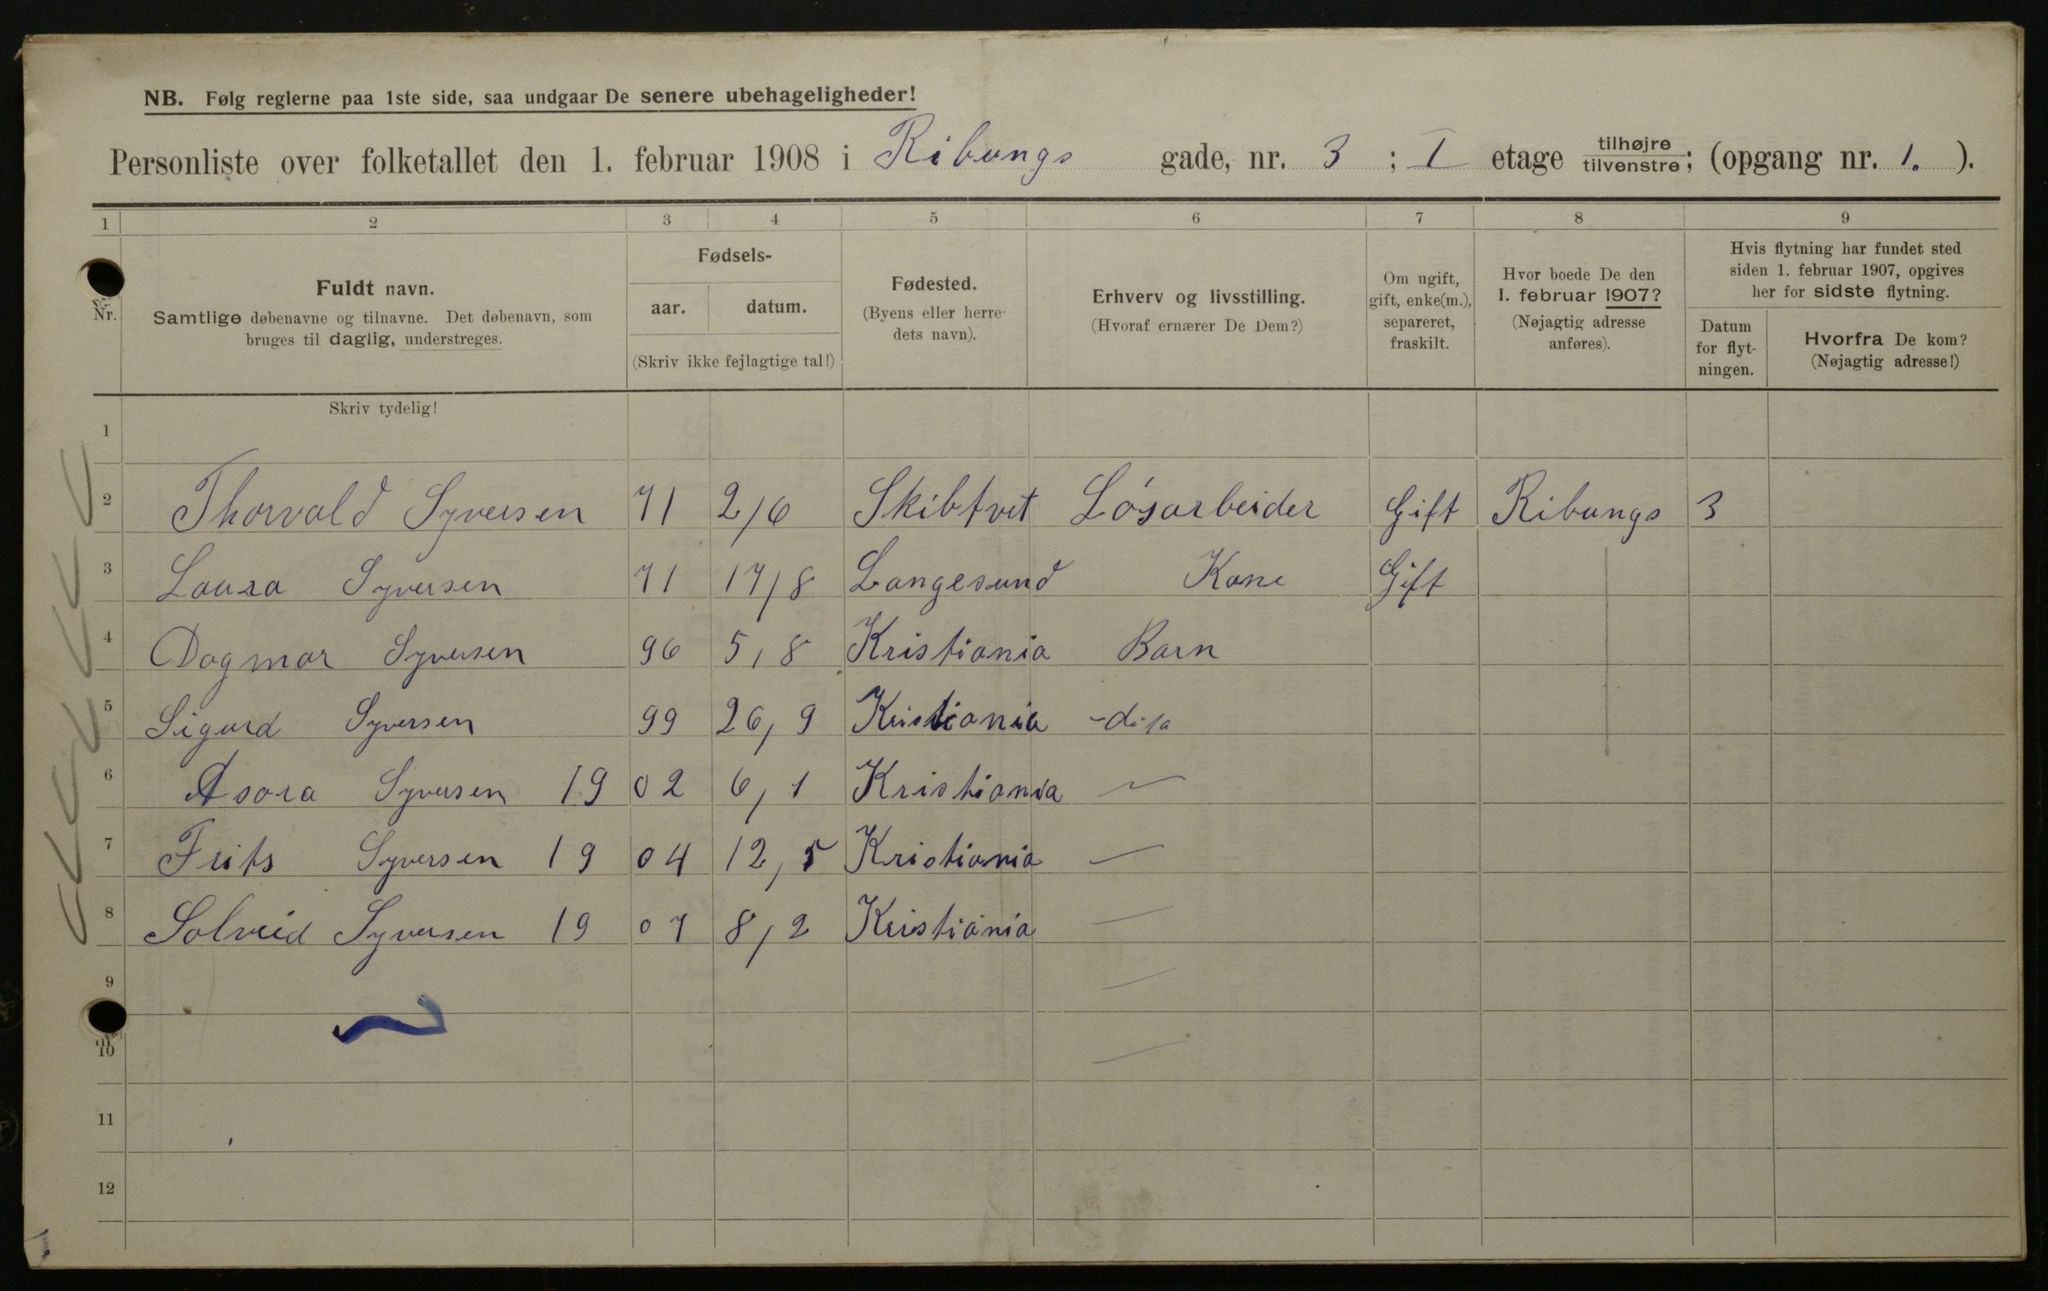 NB. Følg reglerne paa 1ste side, saa undgaar De senere ubehageligheder!
Personliste over folketallet den 1. februar 1908 i Ribungs gade, nr. 3 ; I etage tilhøjre tilvenstre; (opgang nr. 1. ).
1 2 3 4 5 6 7 8 9
Nr.
Fuldt navn.
Samtlige døbenavne og tilnavne. Det døbenavn, som
bruges til daglig, understreges.
Skriv tydelig!
Fødsels-
aar. datum.
(Skriv ikke fejlagtige tal!)
Fødested.
(Byens eller herre-
dets navn).
Erhverv og livsstilling.
(Hvoraf ernærer De Dem?)
Om ugift,
gift, enke(m.),
separeret,
fraskilt.
Hvor boede De den
1. februar 1907?
(Nøjagtig adresse
anføres).
Hvis flytning har fundet sted
siden 1. februar 1907, opgives
her for sidste flytning.
Datum
for flyt-
ningen.
Hvorfra De kom?
(Nøjagtig adresse!)
1
2 Thorvald Syversen 71 2/6 Skibtvet Løsarbeider Gift Ribungs 3
3 Laura Syversen 71 17/8 Langesund Kone Gift
4 Dagmar Syversen 96 5,8 Kristiania Barn
5 Sigurd Syversen 99 26,9 Kristiania -dito
6 Asora Syversen 19 02 6,1 Kristiania —
7 Frits Syversen 19 04 12,5 Kristiania —
8 Solveid Syversen 19 07 8,2 Kristiania —
9 —
10 —
11
12